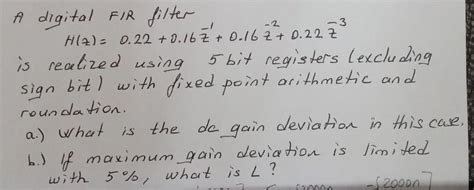 A digital FIR filter
H(z) = 0.22 + 0.16 z⁻¹ + 0.16 z⁻² + 0.22 z⁻³
is realized using 5 bit registers (excluding
sign bit) with fixed point arithmetic and
roundation.
a.) What is the dc gain deviation in this case.
b.) If maximum gain deviation is limited
with 5%, what is L?